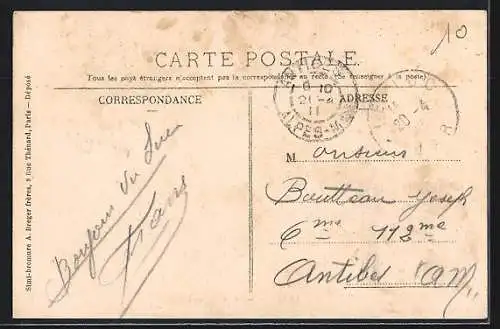 10
CARTE POSTALE
Tous les pays étrangers n'acceptent pas la correspondance au recto. (Se renseigner à la poste)
CORRESPONDANCE
ADRESSE
ANTIBES
6 10
21 -4
11
ALPES-M
LUC
20 -4
VAR
Simi-bromure A. Breger frères, 9 Rue Thénard, Paris — Déposé
Bonjour du Luc
Monsieur
Boutteau Joseph
6me 112me
Antibes AM